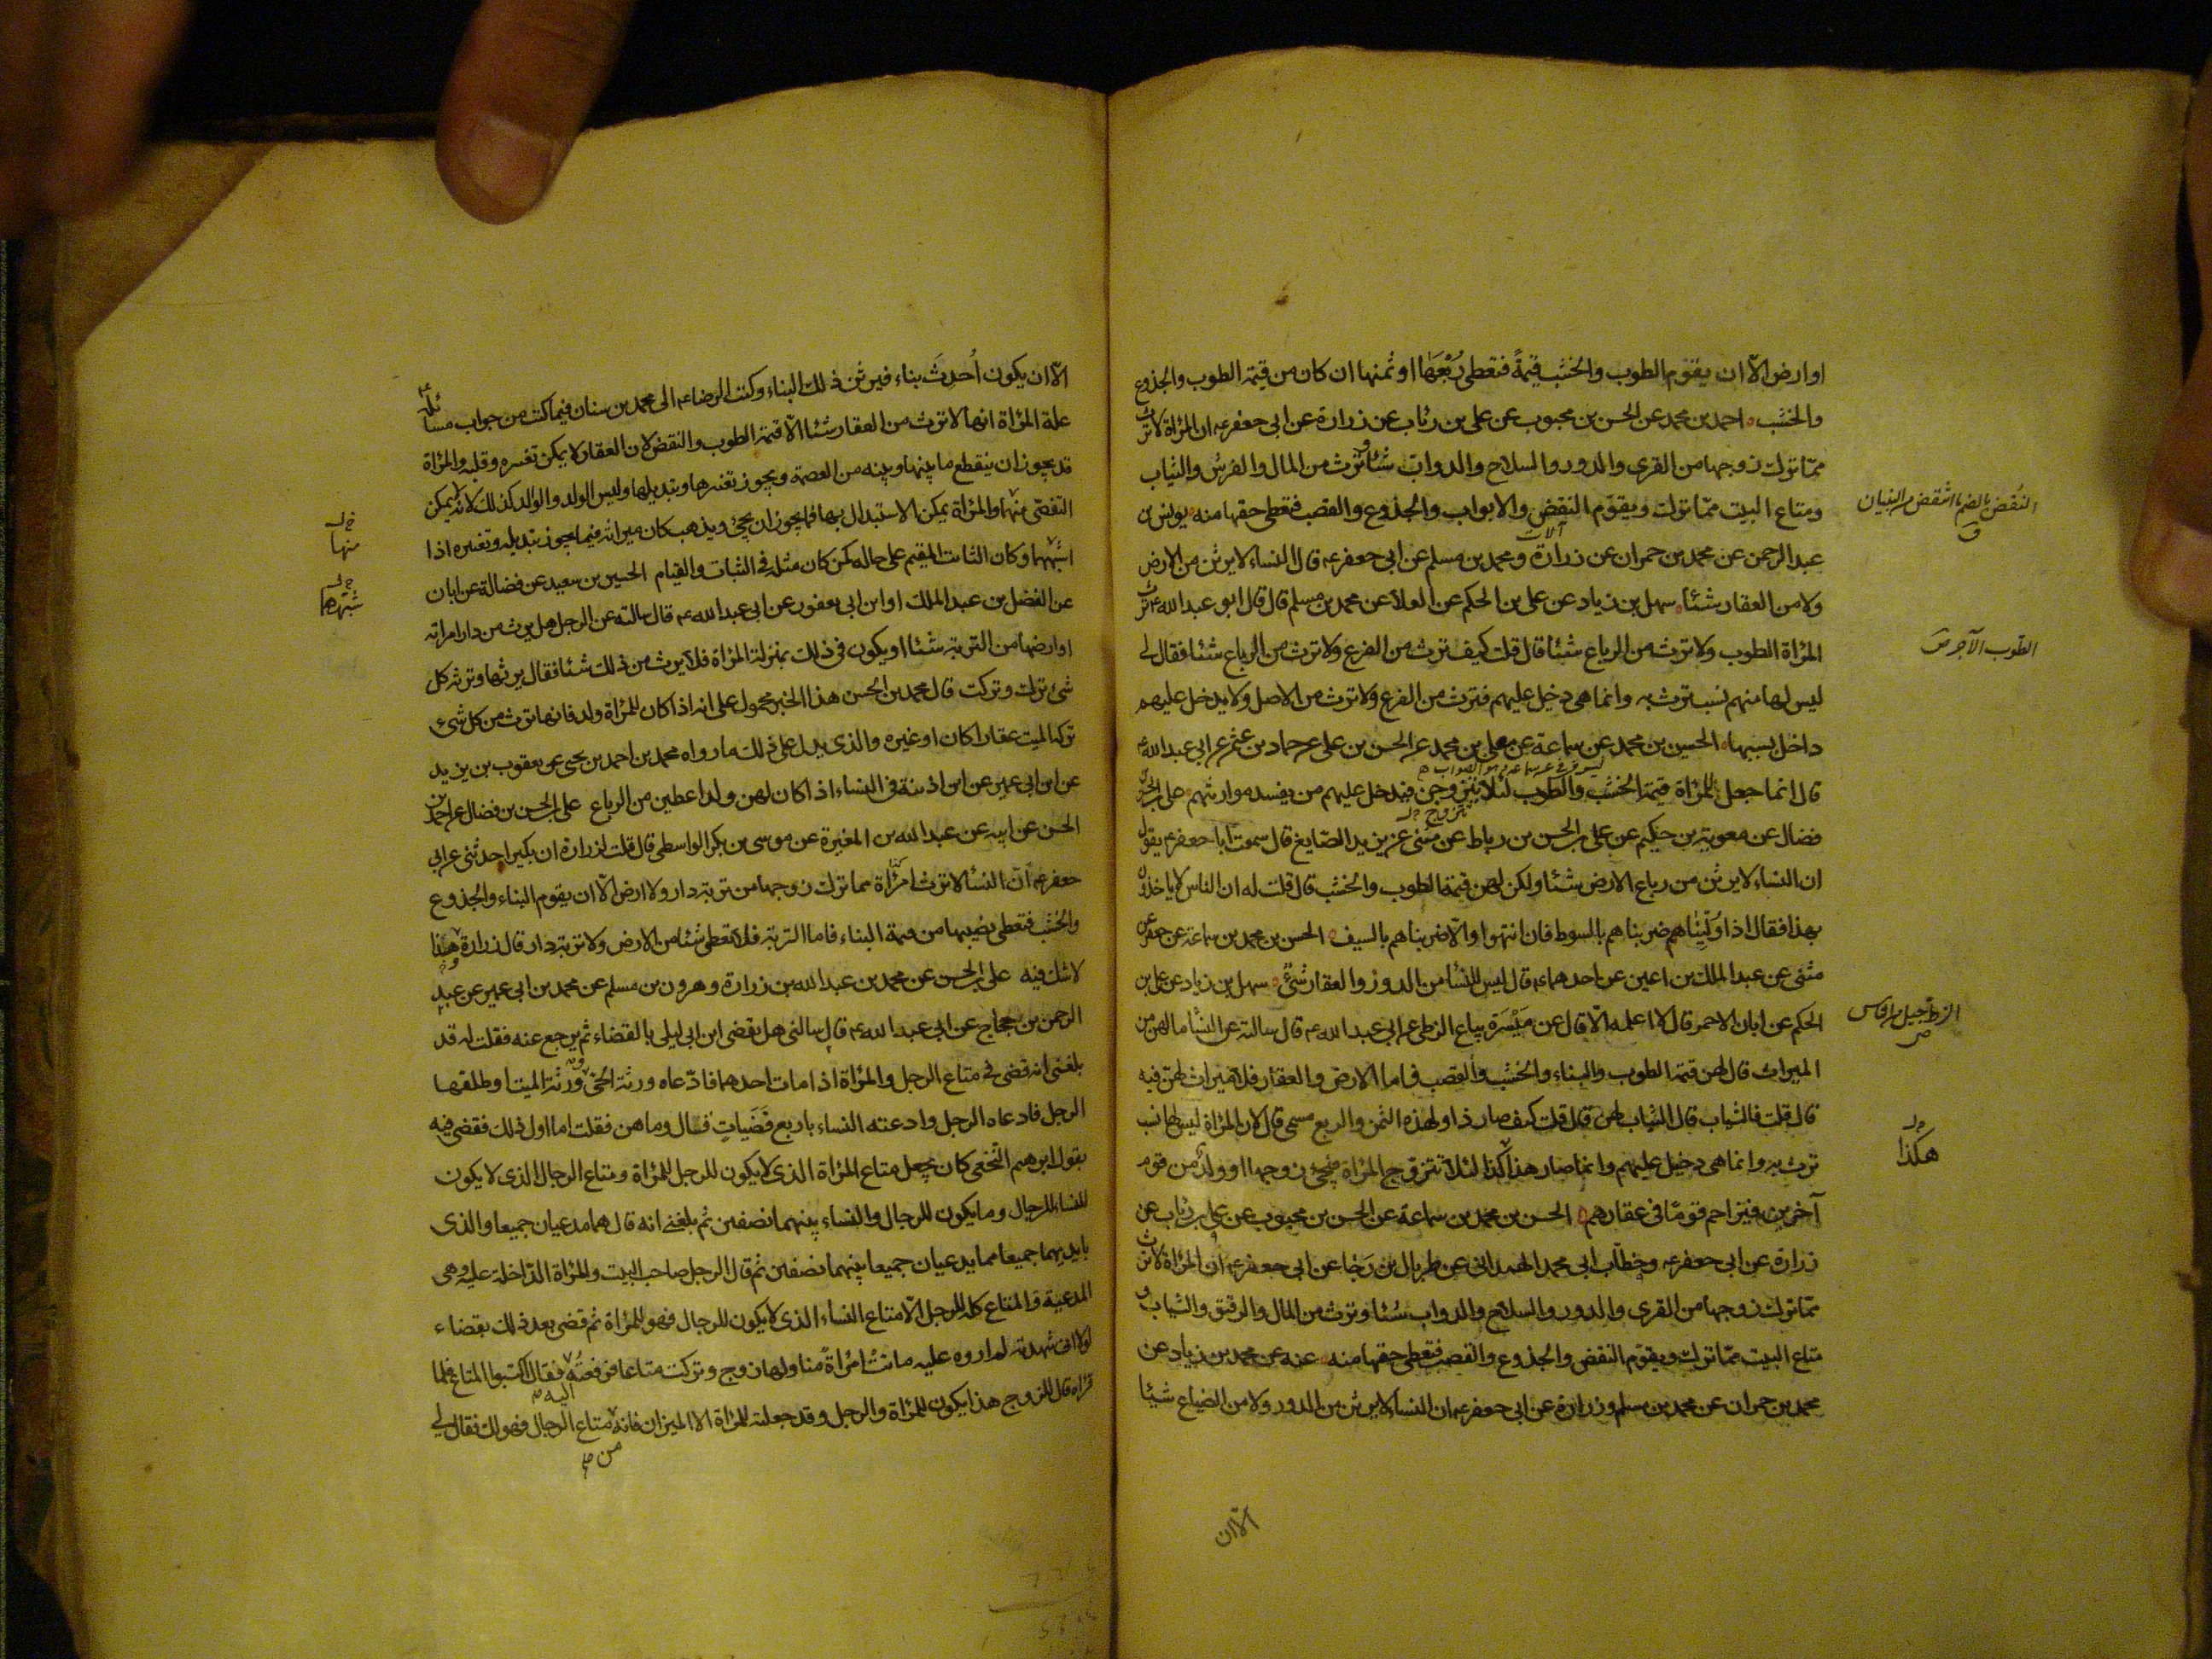 او ارض الّا ان يقوّم الطوب والخشب قيمةً فتعطى رُبْعَهَا او ثمنها ان كان من قيمة الطوب والجذوع
والخشب احمد بن محمد عن الحسن بن محبوب عن على بن رئاب عن زرارة عن ابى جعفر ع ان المرأة لا ترث
ممّا ترك زوجها من القرى والدور والسلاح والدوابّ شيئا وترث من المال والفرش والثياب
ومتاع البيت ممّا ترك ويقوّم النقض والابواب والجذوع والقصب فتعطى حقها منه يونس بن
النُقض بالضم ما انتقض من البنيان
ق
آلات
عبد الرحمن عن محمد بن حمران عن زرارة ومحمد بن مسلم عن ابى جعفر ع قال النساء لا يرثن من الارض
ولا من العقار شيئا سهل بن زياد عن على بن الحكم عن العلا عن محمد بن مسلم قال قال ابو عبد الله ع ترث
المرأة الطوب ولا ترث من الرباع شيئا قال قلت كيف ترث من الفرع ولا ترث من الرباع شيئا فقال لى
الطوب الآجر
ليس لها منهم نسب ترث به وانما هى دخيل عليهم فترث من الفرع ولا ترث من الاصل ولا يدخل عليهم
داخل بسببها الحسين بن محمد عن سماعة عن معلى بن محمد عن الحسن بن على عن حماد بن عثمن عن ابى عبد الله ع
قال انما جعل للمرأة قيمة الخشب والطوب لئلا يتزوجن فيدخل عليهم من يفسد مواريثهم على بن الحسن بن
تتزوج خ ل
فضال عن معوية بن حكيم عن على بن الحسن بن رباط عن مثنى عن يزيد الصايغ قال سمعت ابا جعفر ع يقول
ان النساء لا يرثن من رباع الارض شيئا ولكن لهن قيمة الطوب والخشب قال قلت له ان الناس لا ياخذون
بهذا فقال اذا وُلّيناهم ضربناهم بالسوط فان انتهوا والّا ضربناهم بالسيف الحسن بن محمد بن سماعة عن جعفر عن
مثنى عن عبد الملك بن اعين عن احدهما ع قال ليس للنسا من الدور والعقار شئ سهل بن زياد عن على بن
الحكم عن ابان الاحمر قال لا اعلمه الّا قال عن مَيْسَرة بياع الزطى عن ابى عبد الله ع قال سالته عن النسا ما لهن من
الزط جيل من الناس
الميراث قال لهن قيمة الطوب والبناء والخشب والقصب فاما الارض والعقار فلا ميراث لهنّ فيه
قال قلت فالثياب قال الثياب لهن قال قلت كيف صار ذا ولهذه الثمن والربع مسمى قال لان المرأة ليس لها نسب
ترث به وانما هى دخيل عليهم وانما صار هذا كذا لئلا تتزوج المرأة فيجئ زوجها او ولد من قوم
هكذا
خ ل
آخرين فيزاحم قوما فى عقارهم الحسن بن محمد بن سماعة عن الحسن بن محبوب عن على بن رئاب عن
زرارة عن ابى جعفر ع وخطّاب ابى محمد الهمدانى عن طربال بن رَجَا عن ابى جعفر ع ان المرأة لا ترث
ممّا ترك زوجها من القرى والدور والسلاح والدواب شيئا وترث من المال والرقيق والثياب و
متاع البيت ممّا ترك ويقوّم النقض والجذوع والقصب فتعطى حقها منه عنه عن محمد بن زياد عن
محمد بن حمران عن محمد بن مسلم وزرارة عن ابى جعفر ع ان النسا لا يرثن من الدور ولا من الضياع شيئا
الّا ان
الّا ان يكون اُحدِثَ بناء فيرثن ذلك البناء وكتب الرضا ع الى محمد بن سنان فيما كتب من جواب مسائله
علة المرأة انها لا ترث من العقار شيئا الّا قيمة الطوب والنقض لان العقار لا يمكن تغييره وقلبه والمرأة
قد يجوز ان ينقطع ما بينها وبينه من العصمة ويجوز تغييرها وتبديلها وليس الولد والوالد كذلك لانه لا يمكن
التفصّى منها والمرأة يمكن الاستبدال بها فما يجوز ان يجئ ويذهب كان ميراثه فيما يجوز تبديله وتغييره اذا
خ ل
منهما
اشبهها وكان الثابت المقيم على حاله كمن كان مثله فى الثبات والقيام الحسين بن سعيد عن فضالة عن ابان
خ ل
عن الفضل بن عبد الملك او ابن ابى يعفور عن ابى عبد الله ع قال سالته عن الرجل هل يرث من دار امراته
او ارضها من التربة شيئا او يكون فى ذلك بمنزلة المرأة فلا يرث من ذلك شيئا فقال يرثها وترثه كل
شئ ترك وتركت قال محمد بن الحسن هذا الخبر محمول على انه اذا كان للمرأة ولد فانها ترث من كل شئ
تركه الميت عقارا كان او غيره والذى يدل على ذلك ما رواه محمد بن احمد بن يحيى عن يعقوب بن يزيد
عن ابن ابى عمير عن ابن اذينة فى النساء اذا كان لهن ولد اعطين من الرباع على بن الحسن بن فضال عن احمد بن
الحسن عن ابيه عن عبد الله بن المغيرة عن موسى بن بكر الواسطى قال قلت لزرارة ان بكيرا حدثنى عن ابى
جعفر ع انّ النسا لا ترث امرأة مما ترك زوجها من تربة دار ولا ارض الّا ان يقوم البناء والجذوع
والخشب فتعطى نصيبها من قيمة البناء فاما التربة فلا تعطى شيئا من الارض ولا تربة دار قال زرارة هذا
لا شك فيه على بن الحسن عن محمد بن عبد الله بن زرارة وهرون بن مسلم عن محمد بن ابى عمير عن عبد
الرحمن بن حجاج عن ابى عبد الله ع قال سالنى هل يقضى ابن ابى ليلى بالقضاء ثم يرجع عنه فقلت له قد
بلغنى انه قضى فى متاع الرجل والمرأة اذا مات احدهما فادّعاه ورثة الحىّ وورثة الميت او طلقها
الرجل فادعاه الرجل وادعته النساء باربع قَضَيات فسال وما هن فقلت اما اول ذلك فقضى فيه
بقول ابرهيم النخعى كان يجعل متاع المرأة الذى لا يكون للرجل للمرأة ومتاع الرجال الذى لا يكون
للنساء للرجال وما يكون للرجال والنساء بينهما نصفين ثم بلغنى انه قال هما مدعيان جميعا والذى
بايديهما جميعا مما يدعيان جميعا بينهما نصفين ثم قال الرجل صاحب البيت والمرأة الدّاخلة عليه وهى
المدعية والمتاع كله للرجل الّا متاع النساء الذى لا يكون للرجال فهو للمرأة ثم قضى بعد ذلك بقضاء
لولا انى شهدته لم اروه عليه ماتت امرأة منا ولها زوج وتركت متاعا فرفعته فقال اكتبوا المتاع فلما
اليه
قرأه قال للزوج هذا يكون للمرأة والرجل وقد جعلته للمرأة الا الميزان فانه متاع الرجال فهو لك فقال لى
من